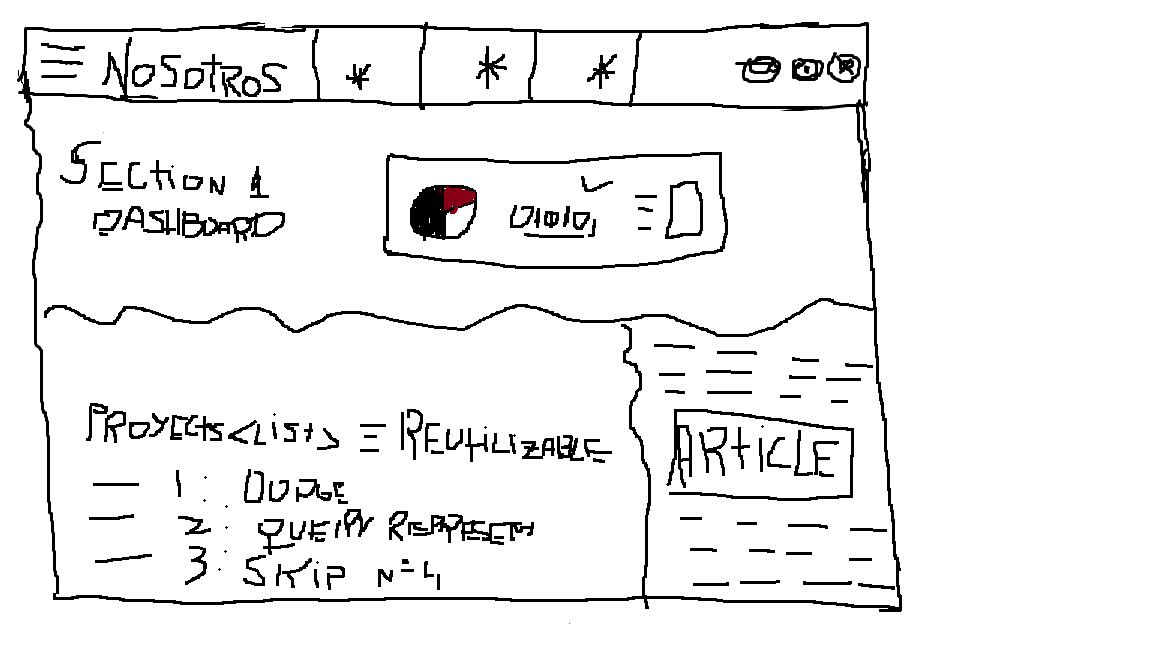 NOSOTROS * * *
SECTION 1
DASHBOARD
01010,
PROYECTS <LIST> = REUTILIZABLE
1: DODGE
2: QUERY
3: SKIP N=4
ARTICLE